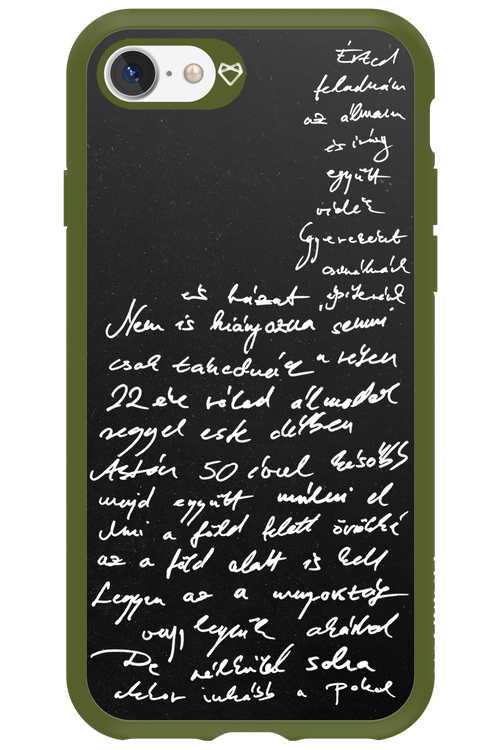 Érted
feladnám
az álmam
és irány
együtt
vidék
Gyerekeket
csinálnánk
és házat építenénk
Nem is hiányozna semmi
csak takednék a réten
22 éve rólad álmodok
reggel este délben
Aztán 50 évvel később
majd együtt múlni el
Ami a föld felett örökké
az a föld alatt is kell
Legyen az a mennyország
vagy legyünk akárhol
De nélküled soha
akkor inkább a pokol